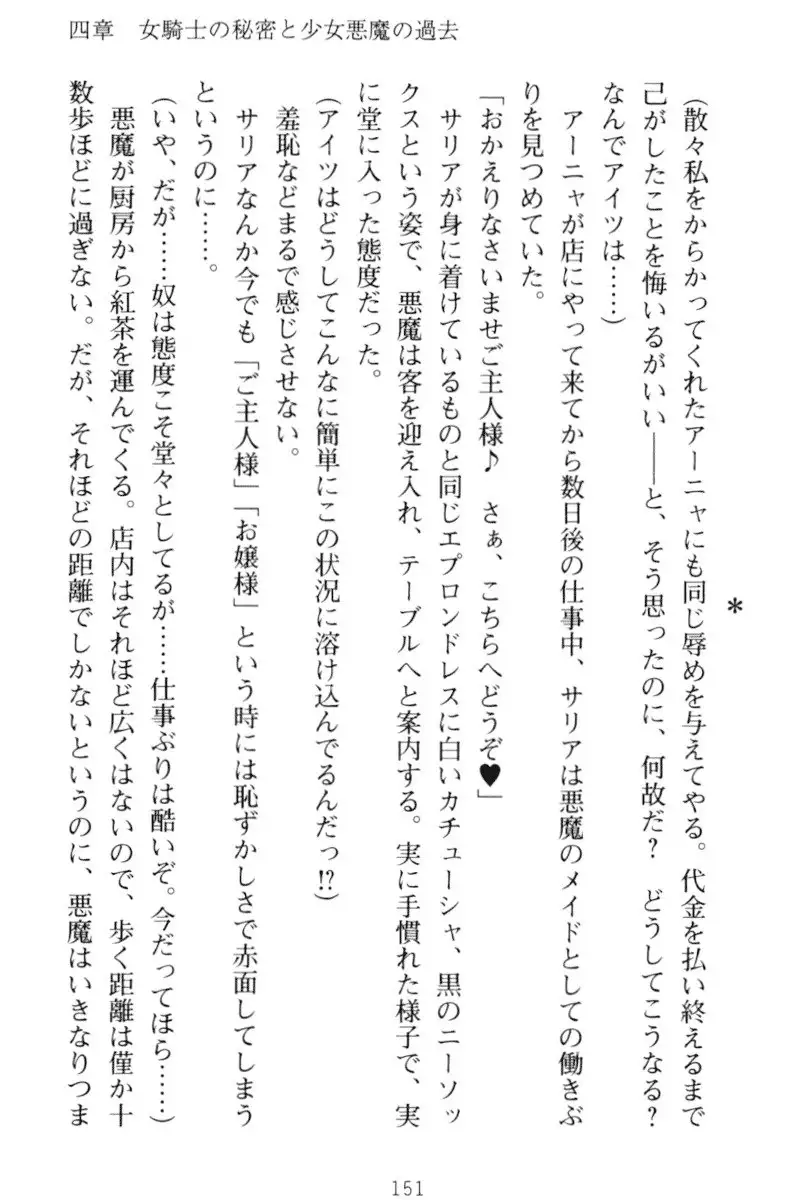 四章　女騎士の秘密と少女悪魔の過去
＊
（散々私をからかってくれたアーニャにも同じ辱めを与えてやる。代金を払い終えるまで
己がしたことを悔いるがいい――と、そう思ったのに、何故だ？　どうしてこうなる？
なんでアイツは……）
　アーニャが店にやって来てから数日後の仕事中、サリアは悪魔のメイドとしての働きぶ
りを見つめていた。
「おかえりなさいませご主人様♪　さぁ、こちらへどうぞ♥」
　サリアが身に着けているものと同じエプロンドレスに白いカチューシャ、黒のニーソッ
クスという姿で、悪魔は客を迎え入れ、テーブルへと案内する。実に手慣れた様子で、実
に堂に入った態度だった。
（アイツはどうしてこんなに簡単にこの状況に溶け込んでるんだっ!?）
　羞恥などまるで感じさせない。
　サリアなんか今でも「ご主人様」「お嬢様」という時には恥ずかしさで赤面してしまう
というのに……。
（いや、だが……奴は態度こそ堂々としてるが……仕事ぶりは酷いぞ。今だってほら……）
　悪魔が厨房から紅茶を運んでくる。店内はそれほど広くはないので、歩く距離は僅か十
数歩ほどに過ぎない。だが、それほどの距離でしかないというのに、悪魔はいきなりつま
151